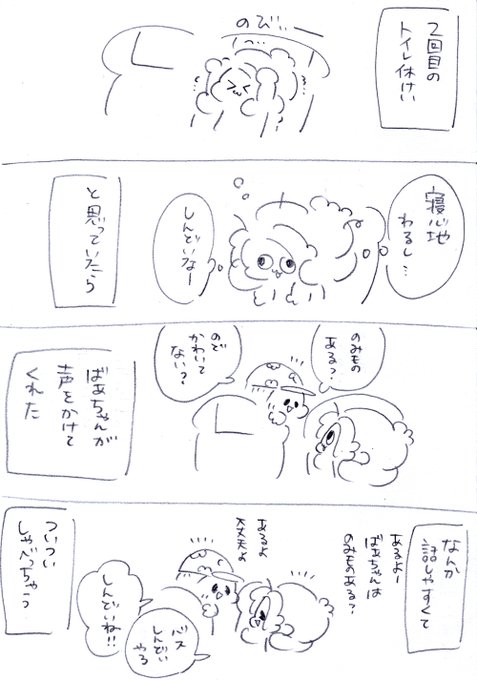 2回目の
トイレ休けい
のび…
寝心地
わるし…
しんどいなー
と思っていたら
のみもの
ある？
のど
かわいて
ない？
ばあちゃんが
声をかけて
くれた
なんか
話しやすくて
あるよー
ばあちゃんは
のみものある？
あるよ
大丈夫よ
バス
しんどい
やろ
しんどいね!!
ついつい
しゃべっちゃう